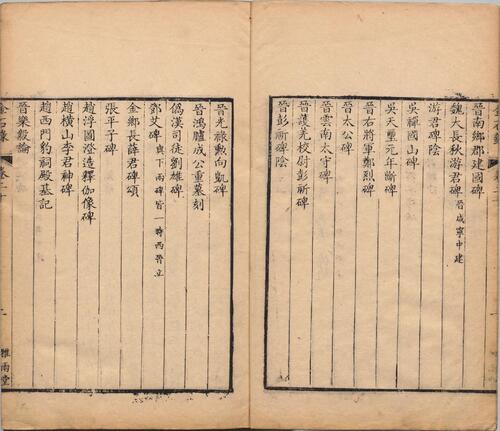 晉南鄉郡建國碑
魏大長秋游君碑晉咸寧中建
游君碑陰
吳禪國山碑
吳天璽元年斷碑
晉右將軍鄭烈碑
晉太公碑
晉雲南太守碑
晉護羌校尉彭祈碑
晉彭祈碑陰
晉光祿勳向凱碑
晉鴻臚成公重墓刻
偽漢司徒劉雄碑
鄧艾碑與下兩碑皆一時西晉立
金鄉長薛君碑頌
張平子碑
趙浮圖澄造釋伽像碑
趙橫山李君神碑
趙西門豹祠殿基記
晉樂毅論
金石錄 卷二十
雅雨堂